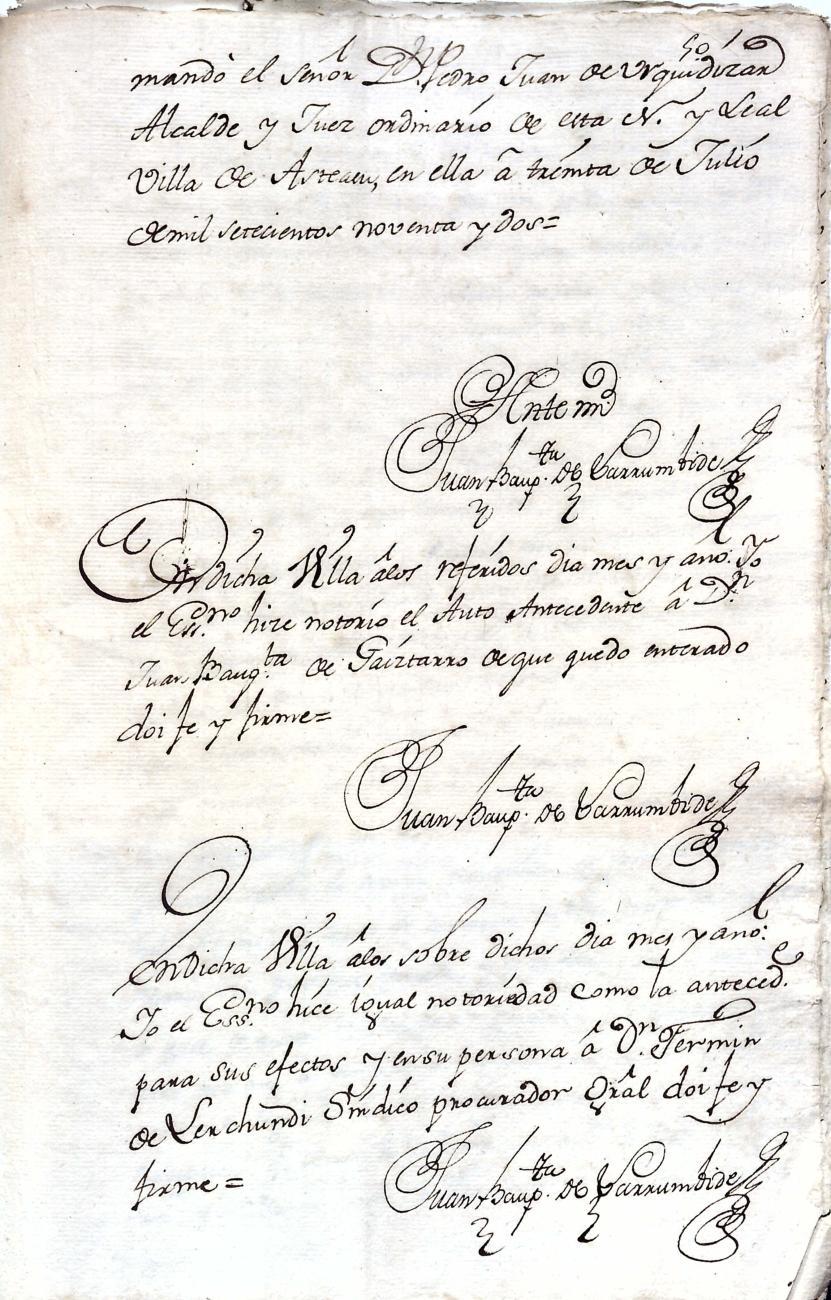 mandò el señor Dn. Pedro Juan de Urquidizar
Alcalde y Juez ordinario de esta N. y Leal
Villa de Asteasu, en ella â treinta de Julio
de mil setecientos noventa y dos=
Ante mi
Juan Baup.ta de Yarrumbide
En dicha Villa âlos referidos dia mes y año: Yo
el Ess.no hize notorio el Auto Antecedente â Dn.
Juan Baup.ta de Gaiztarro de que quedo enterado
doi fe y firme=
Juan Baup.ta de Yarrumbide
En dicha Villa âlos sobre dichos dia mes y año:
Yo el Ess.no hice igual notoriedad como la anteced.e
para sus efectos y en su persona â Dn. Fermin
de Lerchundi Sindico procurador Gral doi fe y
firme=
Juan Baup.ta de Yarrumbide